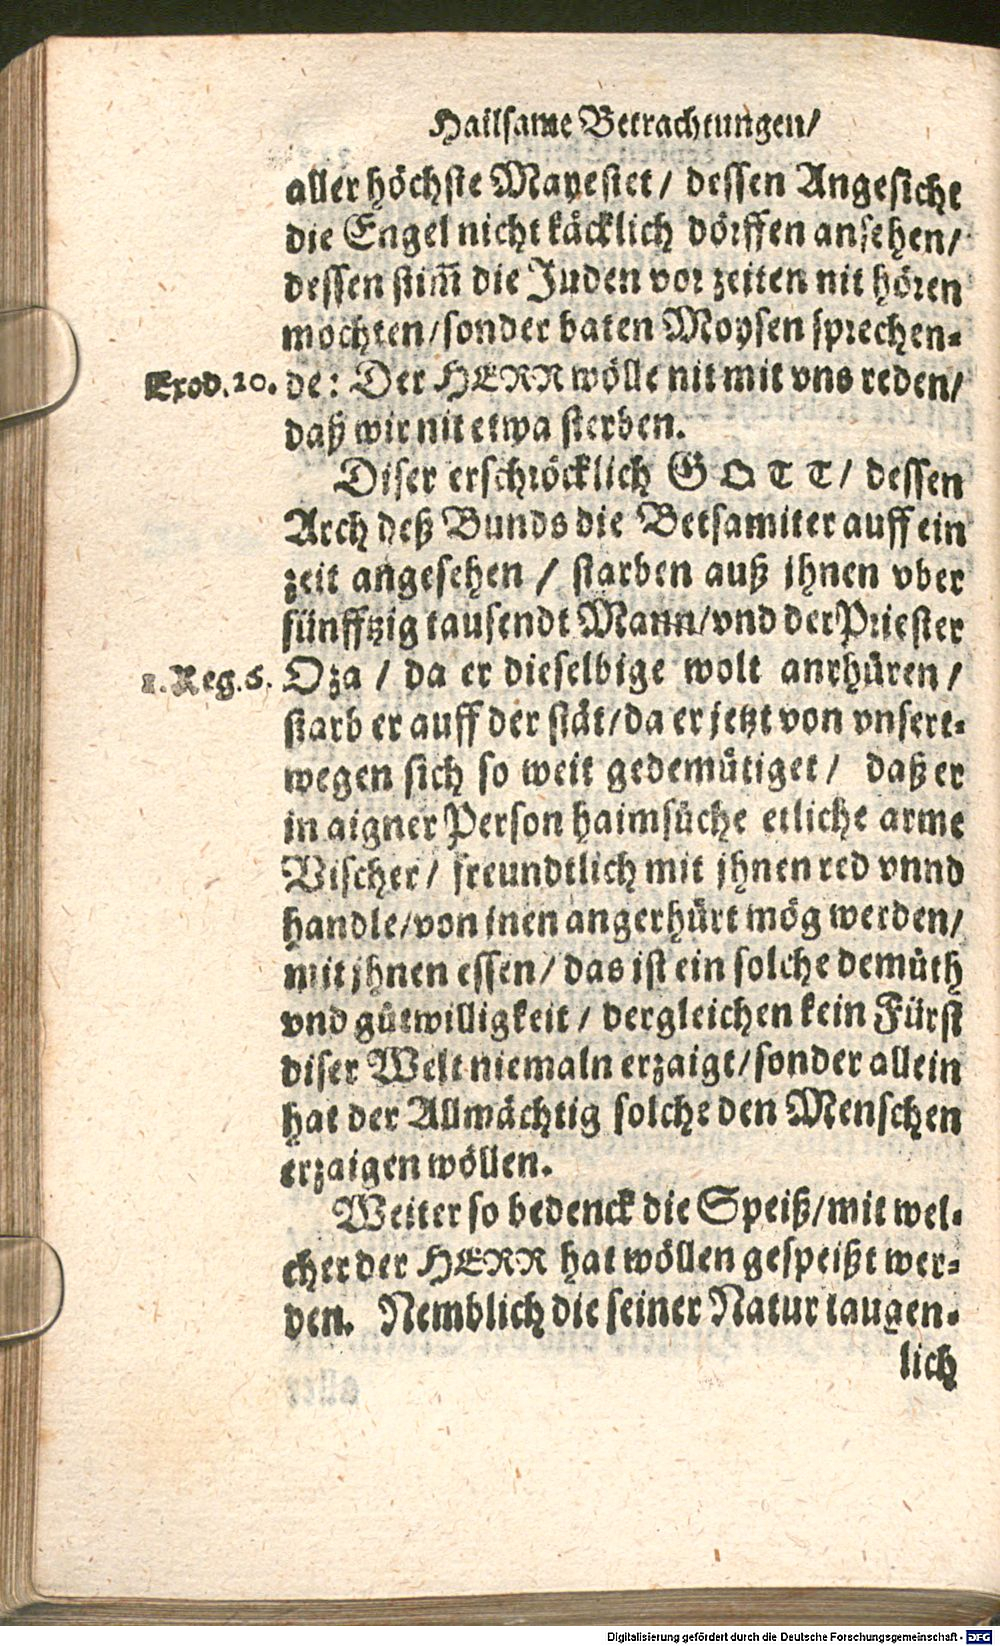 Hailsame Betrachtungen/
aller höchste Mayestet/ dessen Angesicht
die Engel nicht käcklich dörffen ansehen/
dessen stim̃ die Juden vor zeiten nit hören
mochten/sonder baten Moysen sprechen-
Exod. 20. de: Der HERR wölle nit mit vns reden/
daß wir nit etwa sterben.
Diser erschröcklich GOTT/ dessen
Arch deß Bunds die Betsamiter auff ein
zeit angesehen / starben auß jhnen vber
fünfftzig tausendt Mann/vnd der Priester
1. Reg. 6. Oza / da er dieselbige wolt anrhüren/
starb er auff der stät/da er jetzt von vnsert-
wegen sich so weit gedemütiget/ daß er
in aigner Person haimsüche etliche arme
Vischer/ freundtlich mit jhnen red vnnd
handle/von inen angerhürt mög werden/
mit jhnen essen/ das ist ein solche demüth
vnd gütwilligkeit/ dergleichen kein Fürst
diser Welt niemaln erzaigt/sonder allein
hat der Allmächtig solche den Menschen
erzaigen wöllen.
Weiter so bedenck die Speiß/mit wel-
cher der HERR hat wöllen gespeißt wer-
den. Nemblich die seiner Natur taugen-
lich
Digitalisierung gefördert durch die Deutsche Forschungsgemeinschaft - DFG